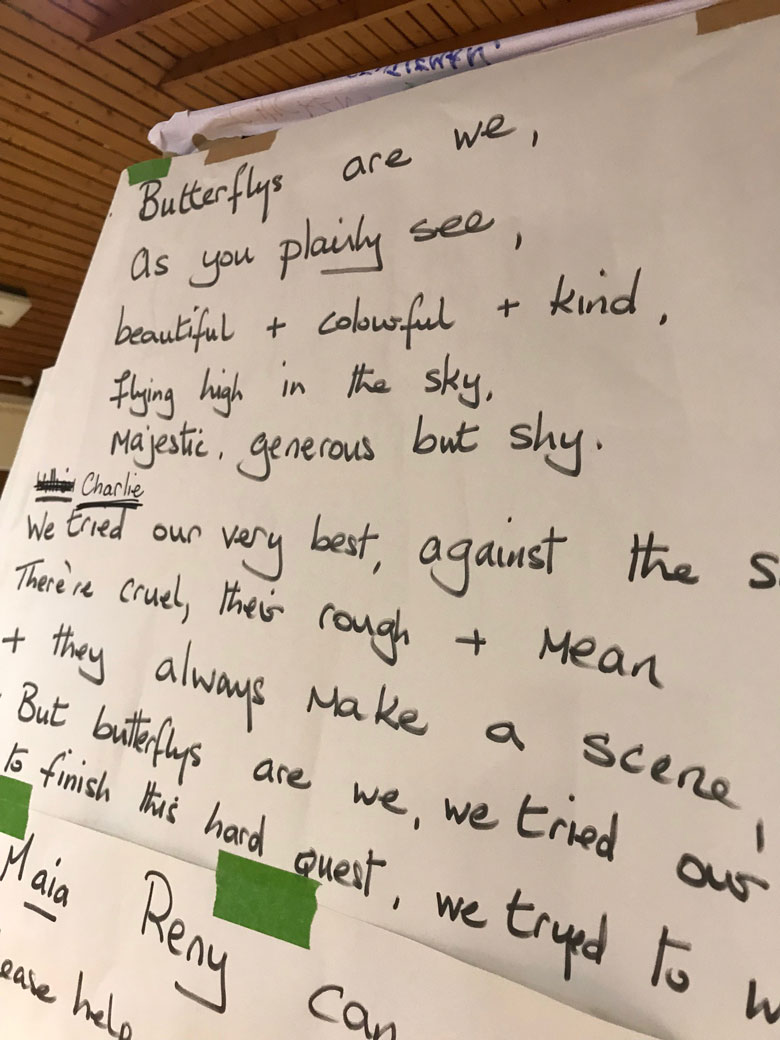 Butterflys are we,
As you plainly see,
beautiful + colourful + kind,
flying high in the sky,
Majestic, generous but shy.
Charlie
We tried our very best, against the
There're cruel, their rough + Mean
+ they always Make a scene,
But butterflys are we, we tried our
to finish this hard quest, we tryed to
Maia Reny can
help